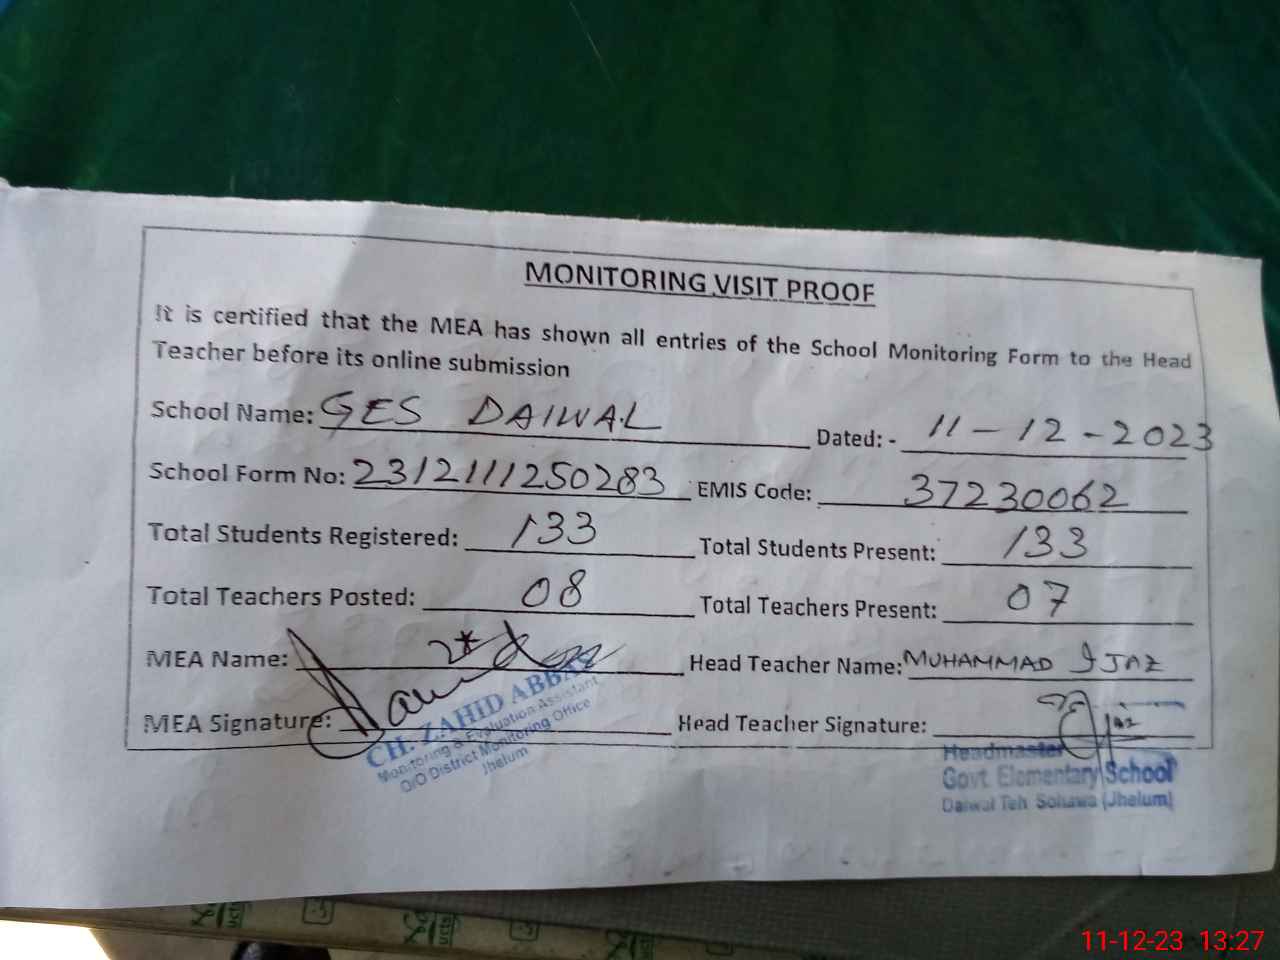 MONITORING VISIT PROOF
It is certified that the MEA has shown all entries of the School Monitoring Form to the Head
Teacher before its online submission
School Name: GES DAIWAL Dated: - 11-12-2023
School Form No: 2312111250283 EMIS Code: 37230062
Total Students Registered: 133 Total Students Present: 133
Total Teachers Posted: 08 Total Teachers Present: 07
MEA Name: Head Teacher Name: MUHAMMAD IJAZ
MEA Signature: Head Teacher Signature:
CH. ZAHID ABBAS
Monitoring & Evaluation Assistant
O/O District Monitoring Office
Jhelum
Headmaster
Govt. Elementary School
Daiwal Teh. Sohawa (Jhelum)
11-12-23 13:27